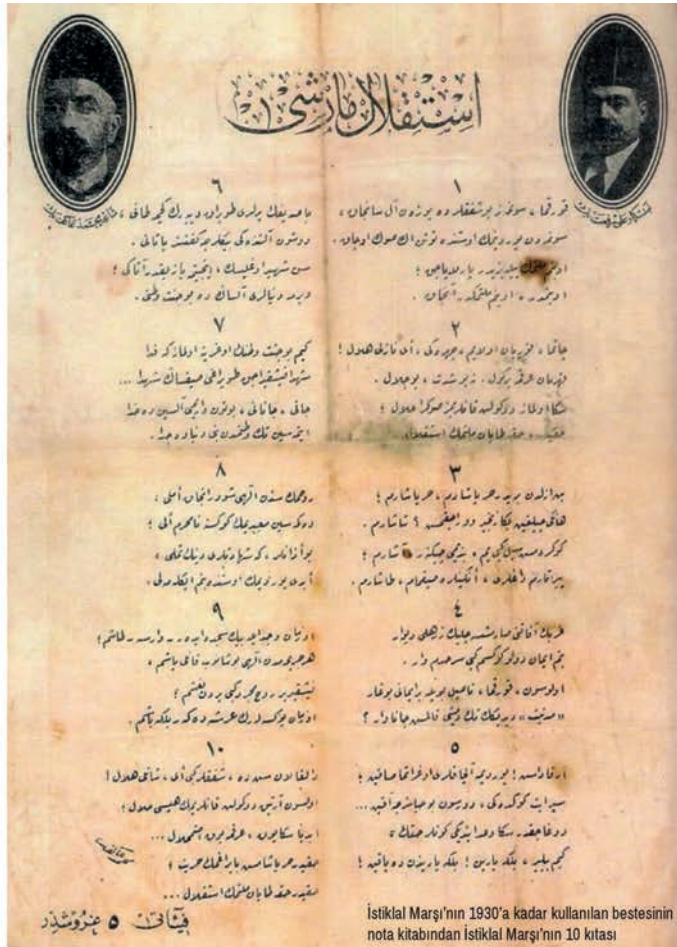 استقلال مارشى
١
قورقما، سونمز بو شفقلرده يوزن آل سانجاق،
سونمدن يوردیمك اوستنده توتن اك صوك اوجاق.
او بنم ملتمك ييلديزيدر پارلاياجق؛
او بنمدر، او بنم ملتمكدر آنجاق.
٢
چاتما، قوربان اولايم، چهره‌كى، اى نازلى هلال!
قهرمان عرقمه بر كول.. نه بو شدت، بو جلال.
سكا اولماز دوكولن قانلريمز صوكرا حلال!
حقيدر، حقه طاپان ملتمك استقلال.
٣
بن ازلدن بريدر حر ياشادم، حر ياشارم؛
هانكى چيلغين بكا زنجير ووراجقمش؟ شاشارم.
كوكره‌مش سيل كبى‌يم، بنديمى چيكنر، آشارم؛
ييرتارم داغلرى، انكينلره صيغمام، طاشارم.
٤
غربك آفاقنى صارمشسه چليك زرهلى ديوار
بنم ايمان دولو كوكسم كبى سرحدم وار.
اولوسون، قورقما، ناصل بويله بر ايمانى بوغار
«مدنيت» ديديكك تك ديشى قالمش جاناوار؟
٥
آرقاداش! يوردیمه آلچاقلرى اوغراتما صاقين؛
سپر ايت كوكده‌كى، دورسون بو حياسزجه آقين...
دوغاجقدر سكا وعد ايتديكى كونلر حقك،
كيم بيلير، بلكه يارين! بلكه ياريندن ده ياقين!
٦
باصديغك يرلرى طوپراق دييه‌رك كچمه طانى،
دوشون آلتنده‌كى بيكلرجه كفنسز ياتانى.
سن شهيد اوغليسك، اينجيتمه يازيقدر آتاكى؛
ويرمه دنيالرى آلساك ده بو جنت وطنى.
٧
كيم بو جنت وطنك اوغرينه اولماز كه فدا
شهدا فيشقيراجق طوپراغى صيقساك شهدا...
جانى، جانانى، بوتون واريمى آلسين ده خدا
ايتمه‌سين تك وطنمدن بنى دنياده جدا.
٨
روحمك سندن الهى شودر آنجاق املى؛
دكمه‌سين معبديمك كوكسنه نامحرم الى؛
بو اذانلر، كه شهادتلرى دينك تملى،
ابدى يوردیمك اوستنده بنم ايكله‌ملى.
٩
او زمان وجد ايله بيك سجده ايدر ـ وارسه ـ طاشم؛
هر جريحه‌مدن الهى بوشانوب قانلى ياشم،
فيشقيرير روح مجرد كبى يردن نعشم؛
او زمان يوكسله‌رك عرشه دكر بلكه باشم.
١٠
دالغالان سن ده، شفقلر كبى اى شانلى هلال!
اولسون آرتق دوكولن قانلريمك هپسى حلال؛
ابديا سكا يوق، عرقمه يوق اضمحلال...
حقيدر حر ياشامش بايراغمك حريت؛
حقيدر حقه طاپان ملتمك استقلال...
فيئاتى ٥ غروشدر
İstiklal Marşı'nın 1930'a kadar kullanılan bestesinin
nota kitabından İstiklal Marşı'nın 10 kıtası